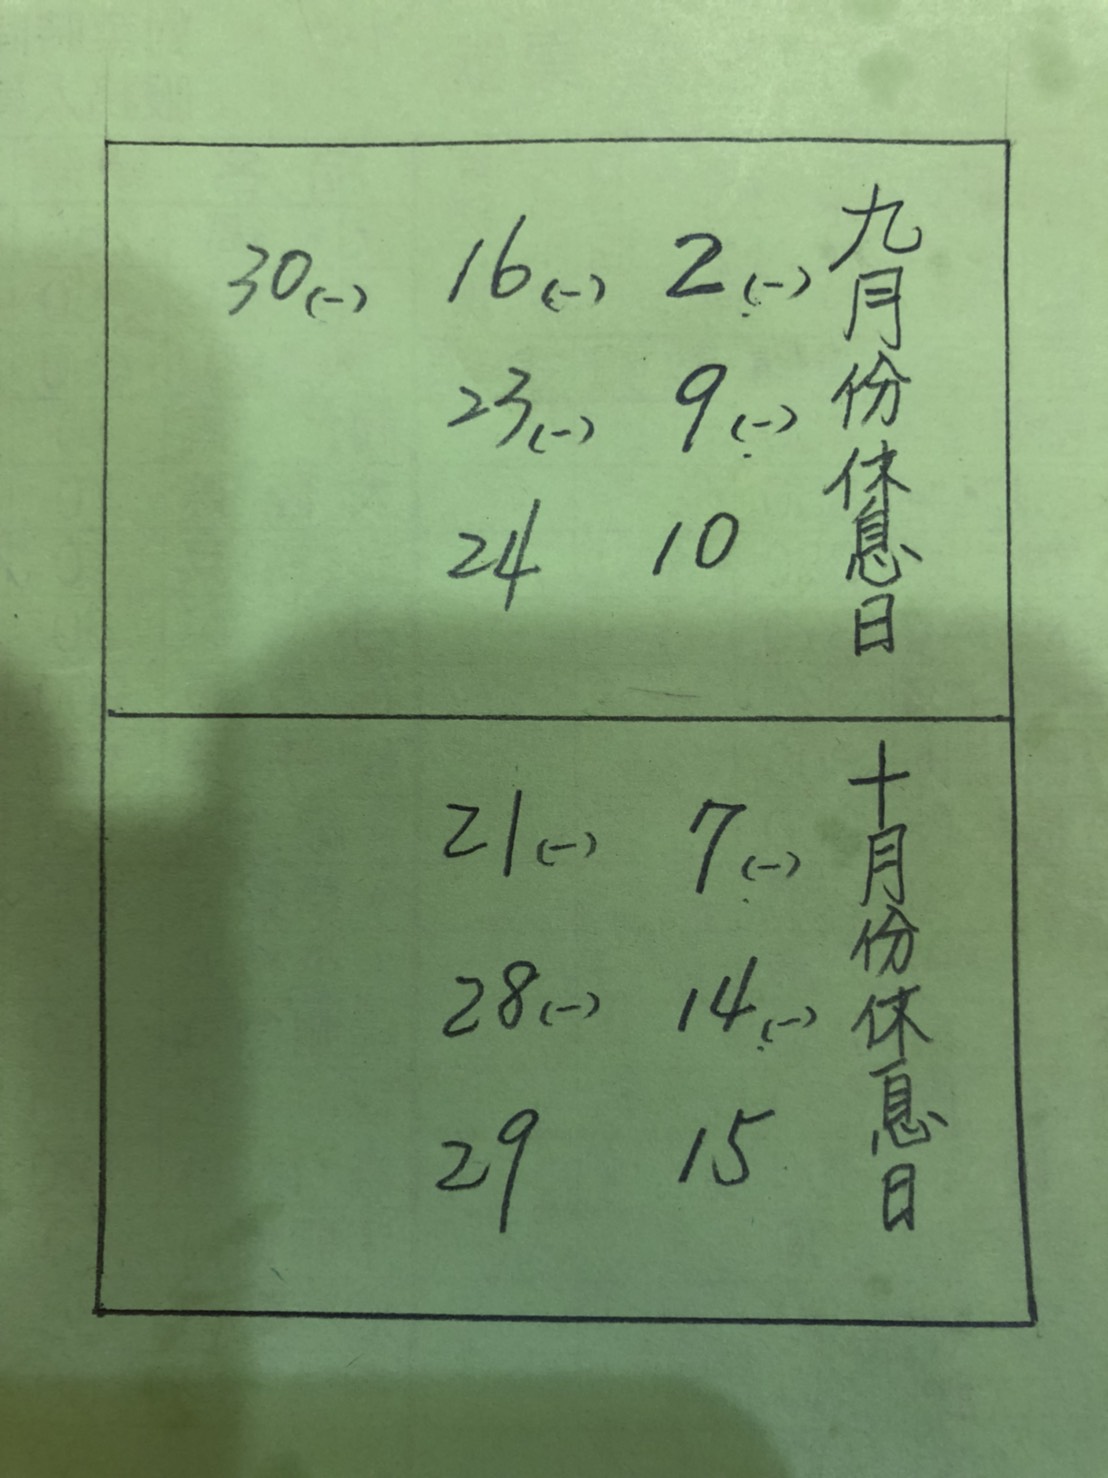 九月份休息日
2(一)
9(一)
10
16(一)
23(一)
24
30(一)
十月份休息日
7(一)
14(一)
15
21(一)
28(一)
29